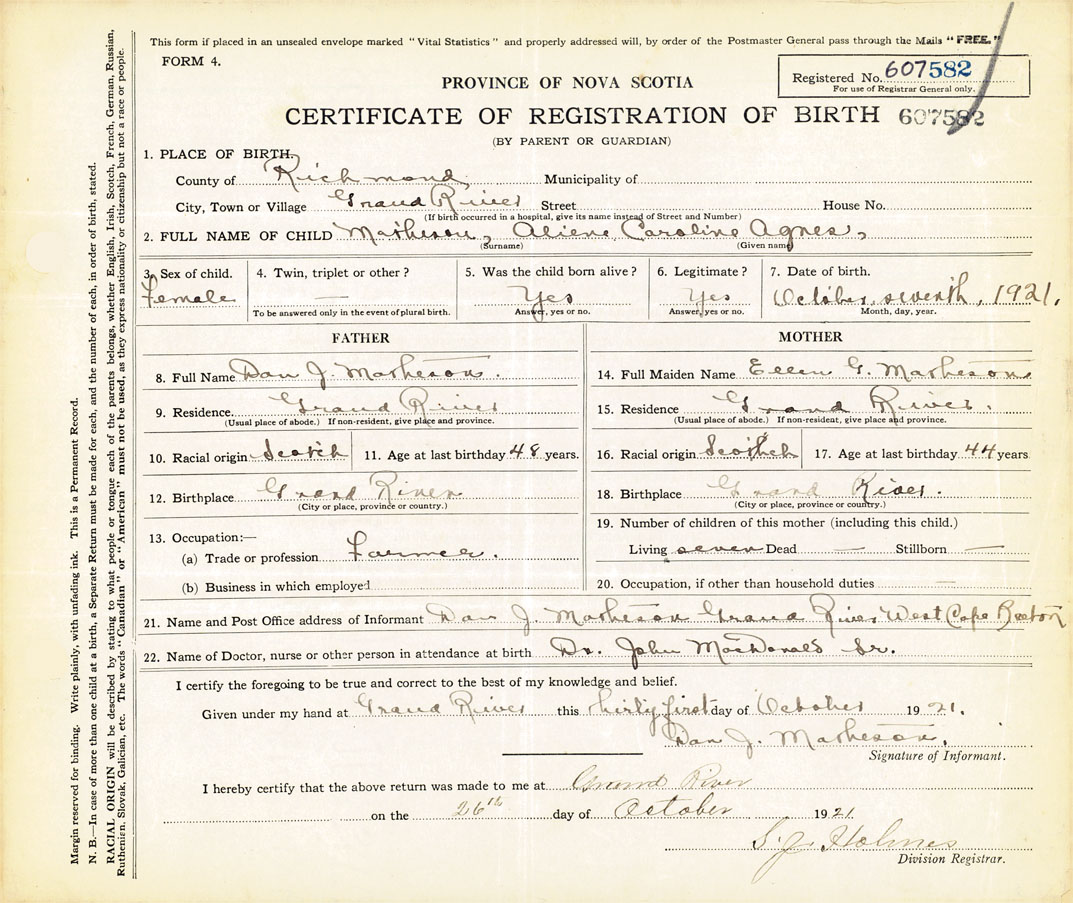 This form if placed in an unsealed envelope marked "Vital Statistics" and properly addressed will, by order of the Postmaster General pass through the Mails "FREE."
FORM 4.
Registered No. 607582
For use of Registrar General only.
PROVINCE OF NOVA SCOTIA
CERTIFICATE OF REGISTRATION OF BIRTH 607582
(BY PARENT OR GUARDIAN)
1. PLACE OF BIRTH.
County of Richmond Municipality of
City, Town or Village Grand River Street House No.
(If birth occurred in a hospital, give its name instead of Street and Number)
2. FULL NAME OF CHILD Matheson, Aliene Caroline Agnes,
(Surname) (Given name)
3. Sex of child. 4. Twin, triplet or other? 5. Was the child born alive? 6. Legitimate? 7. Date of birth.
Female — Yes Yes October seventh, 1921.
To be answered only in the event of plural birth. Answer, yes or no. Answer, yes or no. Month, day, year.
FATHER
8. Full Name Dan J. Matheson.
9. Residence. Grand River
(Usual place of abode.) If non-resident, give place and province.
10. Racial origin Scotch 11. Age at last birthday 48 years.
12. Birthplace Grand River
(City or place, province or country.)
13. Occupation:—
(a) Trade or profession Farmer.
(b) Business in which employed
MOTHER
14. Full Maiden Name Ellen G. Matheson
15. Residence Grand River.
(Usual place of abode.) If non-resident, give place and province.
16. Racial origin Scotch 17. Age at last birthday 44 years
18. Birthplace Grand River.
(City or place, province or country.)
19. Number of children of this mother (including this child.)
Living seven Dead — Stillborn —
20. Occupation, if other than household duties —
21. Name and Post Office address of Informant Dan J. Matheson Grand River West Cape Breton
22. Name of Doctor, nurse or other person in attendance at birth Dr. John MacDonald Sr.
I certify the foregoing to be true and correct to the best of my knowledge and belief.
Given under my hand at Grand River this thirty first day of October 1921.
Dan J. Matheson.
Signature of Informant.
I hereby certify that the above return was made to me at Grand River
on the 26th day of October 1921
S. J. Holmes
Division Registrar.
Margin reserved for binding. Write plainly, with unfading ink. This is a Permanent Record.
N. B.—In case of more than one child at a birth, a Separate Return must be made for each, and the number of each, in order of birth, stated.
RACIAL ORIGIN will be described by stating to what people or tongue each of the parents belongs, whether English, Irish, Scotch, French, German, Russian,
Ruthenian, Slovak, Galician, etc. The words "Canadian" or "American" must not be used, as they express nationality or citizenship but not a race or people.